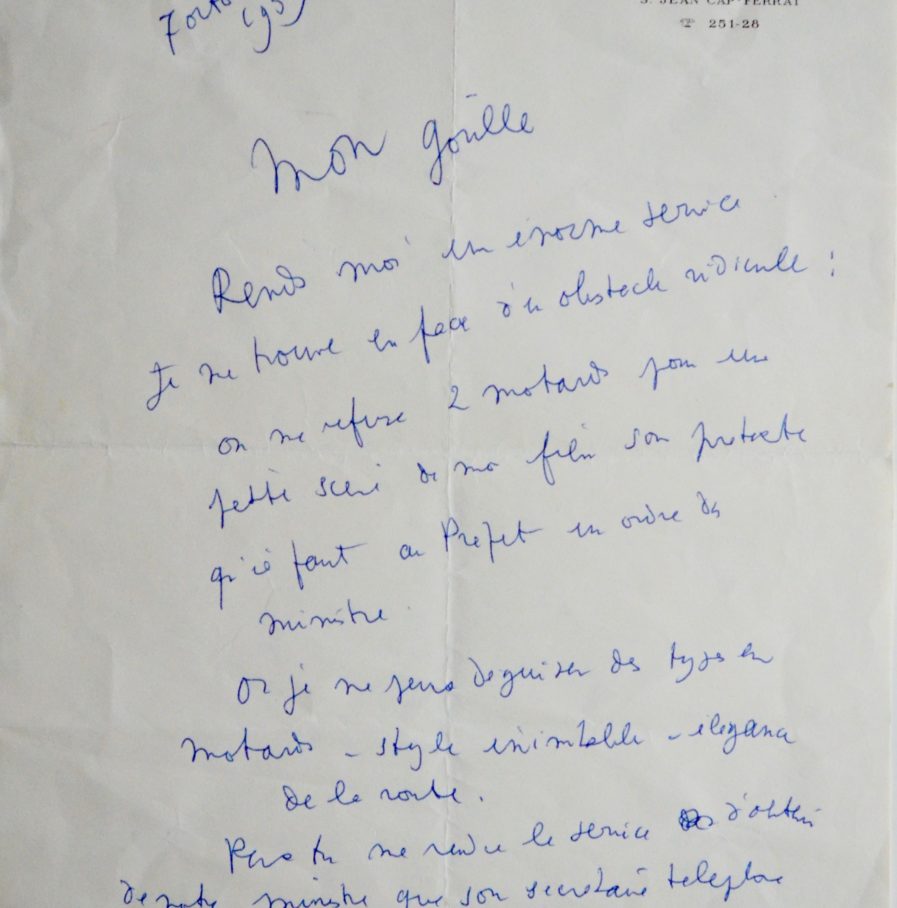 S. JEAN CAP-FERRAT
☎ 251-28
7 octo
195
Mon Goulle
Rends moi un énorme service
Je me trouve en face d'un obstacle ridicule :
on me refuse 2 motards pour une
petite scène de mon film son prétexte
qu'il faut au Préfet un ordre du
ministre.
Or je ne peux deguiser des types en
motards - style inimitable - élégance
de la route.
Peux tu me rendre le service d'obtenir
de notre ministre que son secretaire telephone